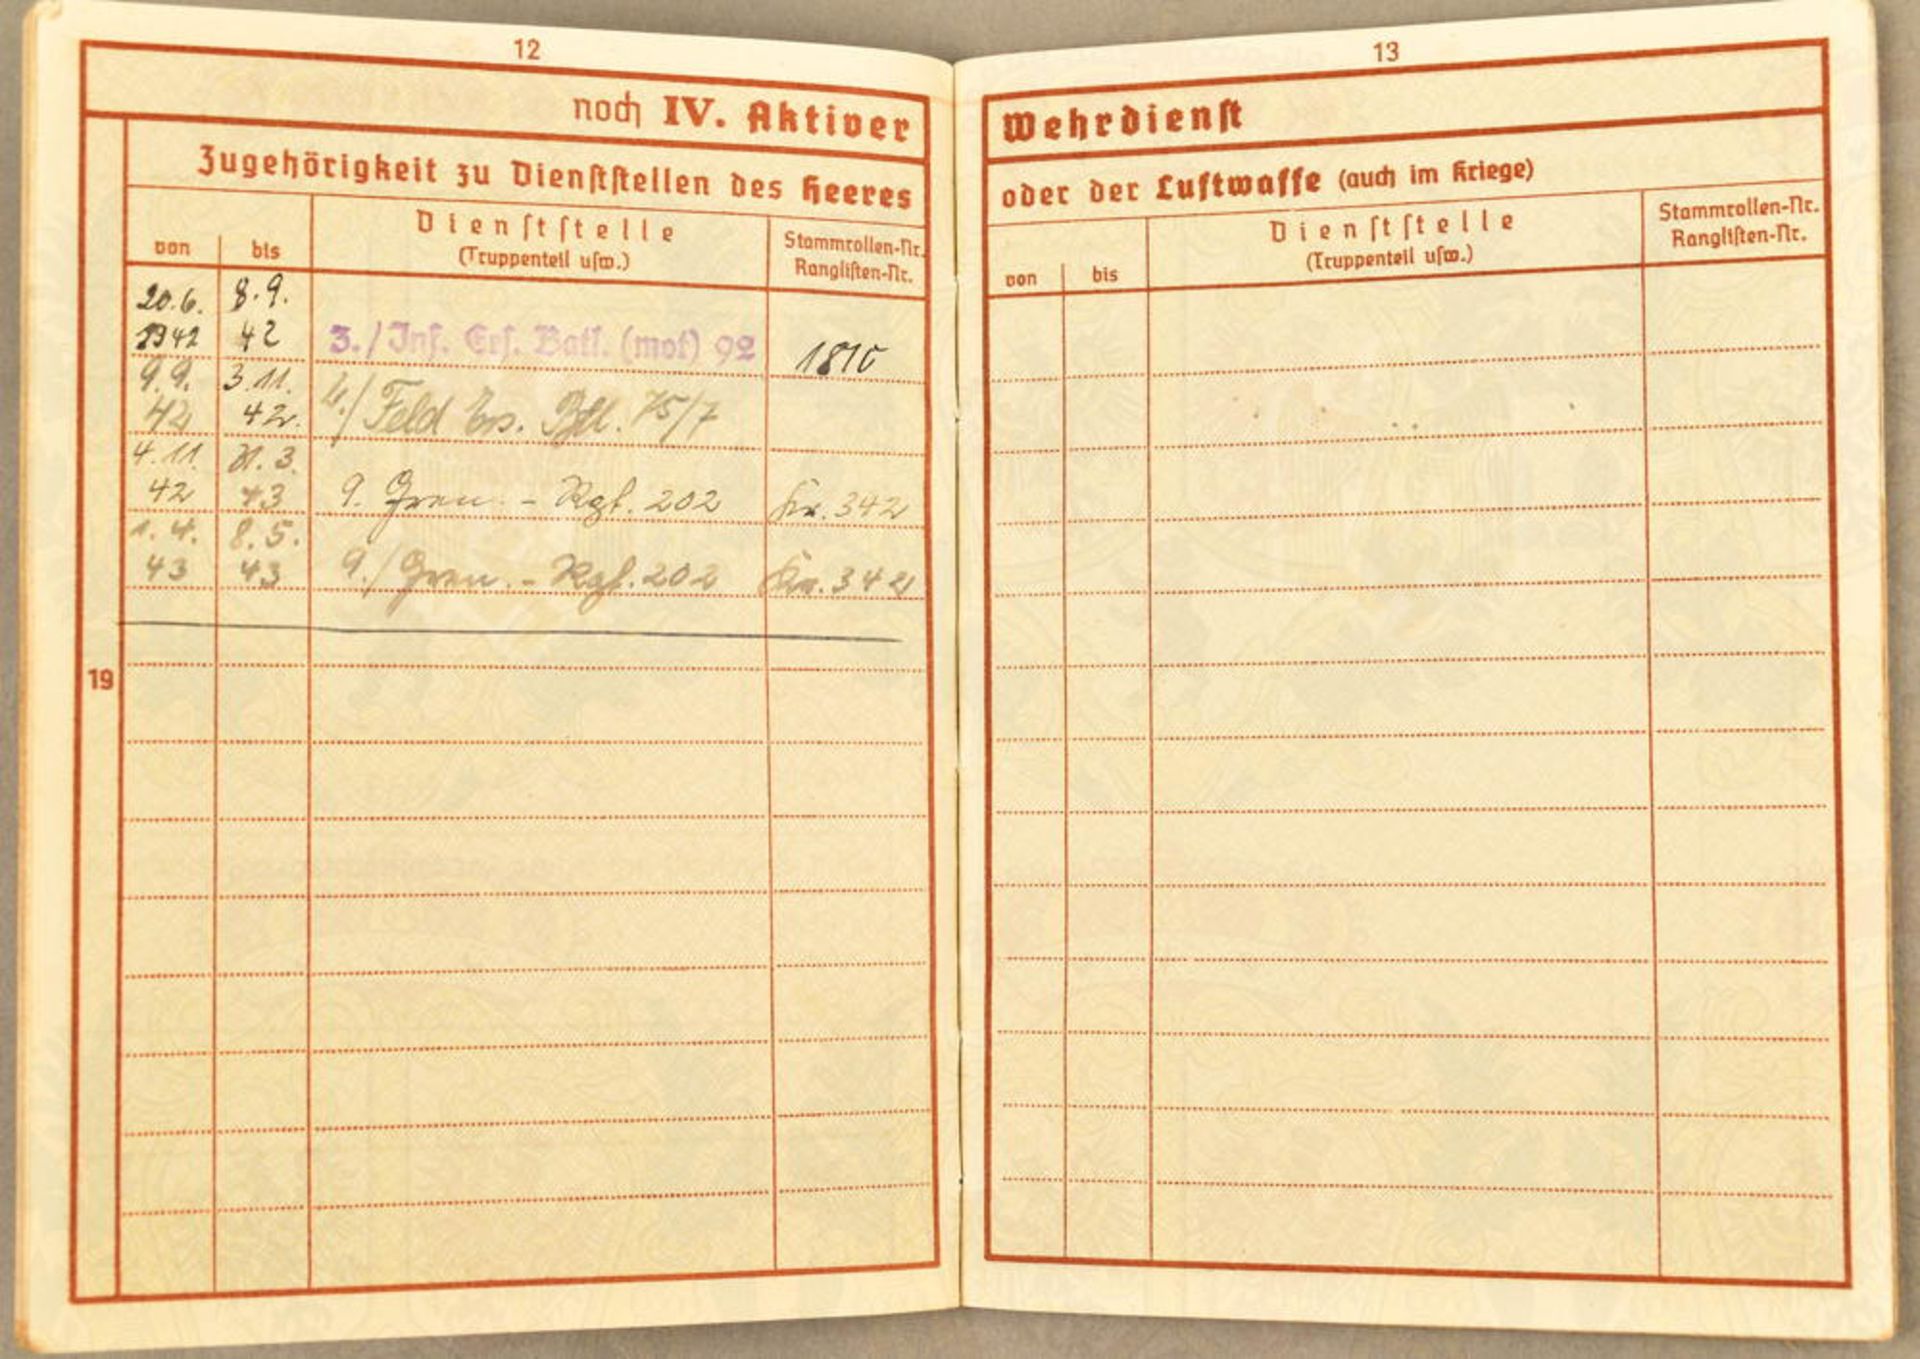 12
noch IV. Aktiver
Zugehörigkeit zu Dienststellen des Heeres
von
bis
Dienststelle
(Truppenteil usw.)
Stammrollen-Nr.
Ranglisten-Nr.
20.6. 8.9.
1942 42 3./Inf. Ers. Batl. (mot) 92 1810
9.9. 3.11.
42 42. 4./Feld Ers. Btl. 75/7
4.11. 31.3.
42 43 9. Gren.-Rgt. 202 Kr. 342
1.4. 8.5.
43 43 9./Gren.-Rgt. 202 Kr. 342
19
13
Wehrdienst
oder der Luftwaffe (auch im Kriege)
von
bis
Dienststelle
(Truppenteil usw.)
Stammrollen-Nr.
Ranglisten-Nr.